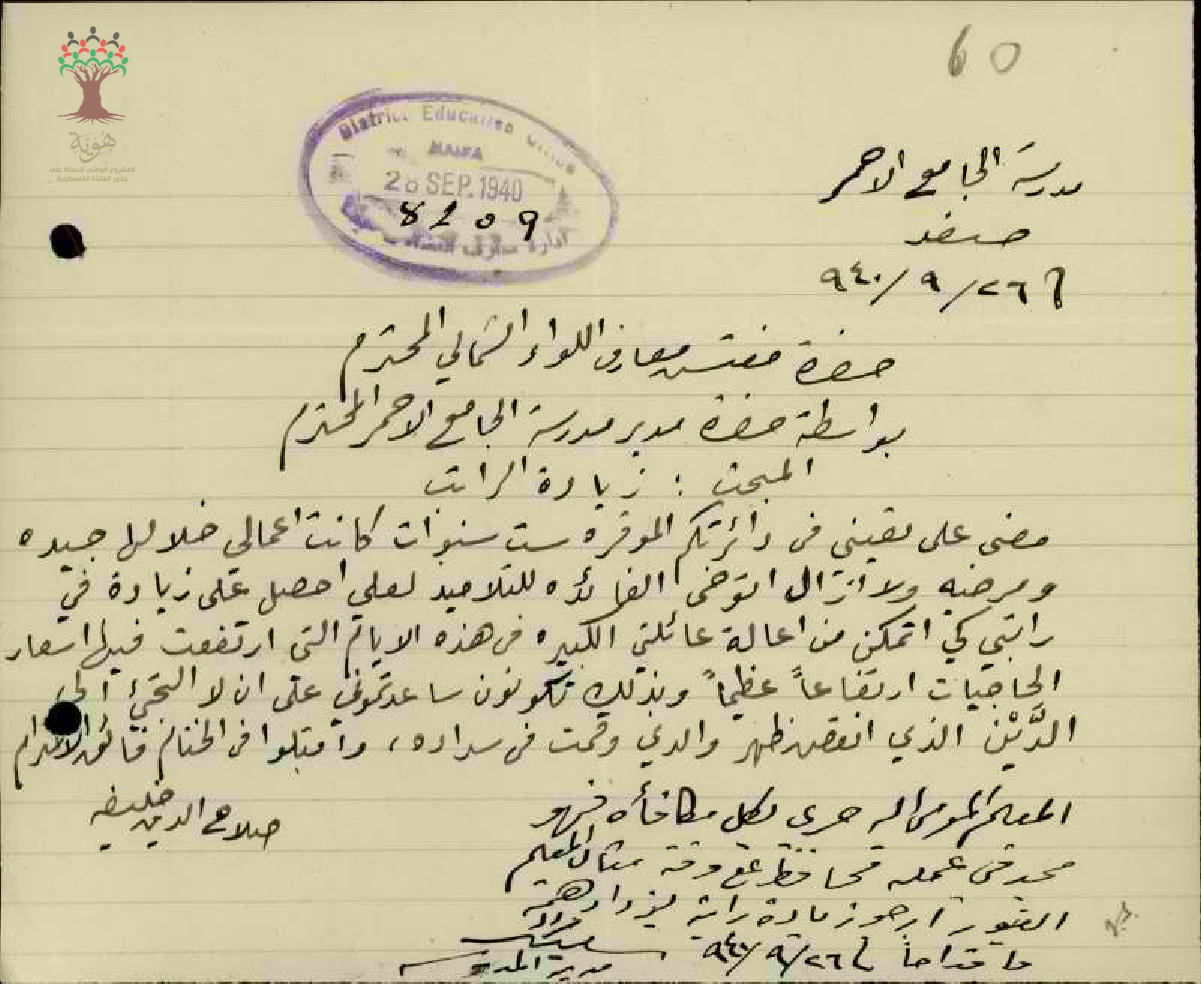 60
هوية
المشروع الوطني للحفاظ على
جذور العائلة الفلسطينية
District Education Office
HAIFA
28 SEP. 1940
8209
ادارة معارف
مدرسة الجامع الاحمر
صفد
٢٦/٩/٩٤٠
حضرة مفتش معارف اللواء الشمالي المحترم
بواسطة حضرة مدير مدرسة الجامع الاحمر المحترم
المبحث : زيادة الراتب
مضى على تعييني في دائرتكم الموقره ست سنوات كانت اعمالي خلالها جيده
ومرضيه ولا ازال اتوخى الفائده للتلاميذ لعلي احصل على زيادة في
راتبي كي اتمكن من اعالة عائلتي الكبيره في هذه الايام التي ارتفعت فيها اسعار
الحاجيات ارتفاعاً عظيماً وبذلك تكونون ساعدتموني على ان لا التجئ الى
الدَّيْن الذي انقض ظهر والدي وقمت في سداده، واقبلوا في الختام فائق الاحترام
صلاح الدين خليفه
المعلم المومى اليه حرى بكل مكافأه فهو
مجد في عمله محافظ على وقته مثال المعلم
الغيور ارجو زيادة راتبه ليزداد همة
واقداما ٢٦/٩/٩٤٠
مدير المدرسة